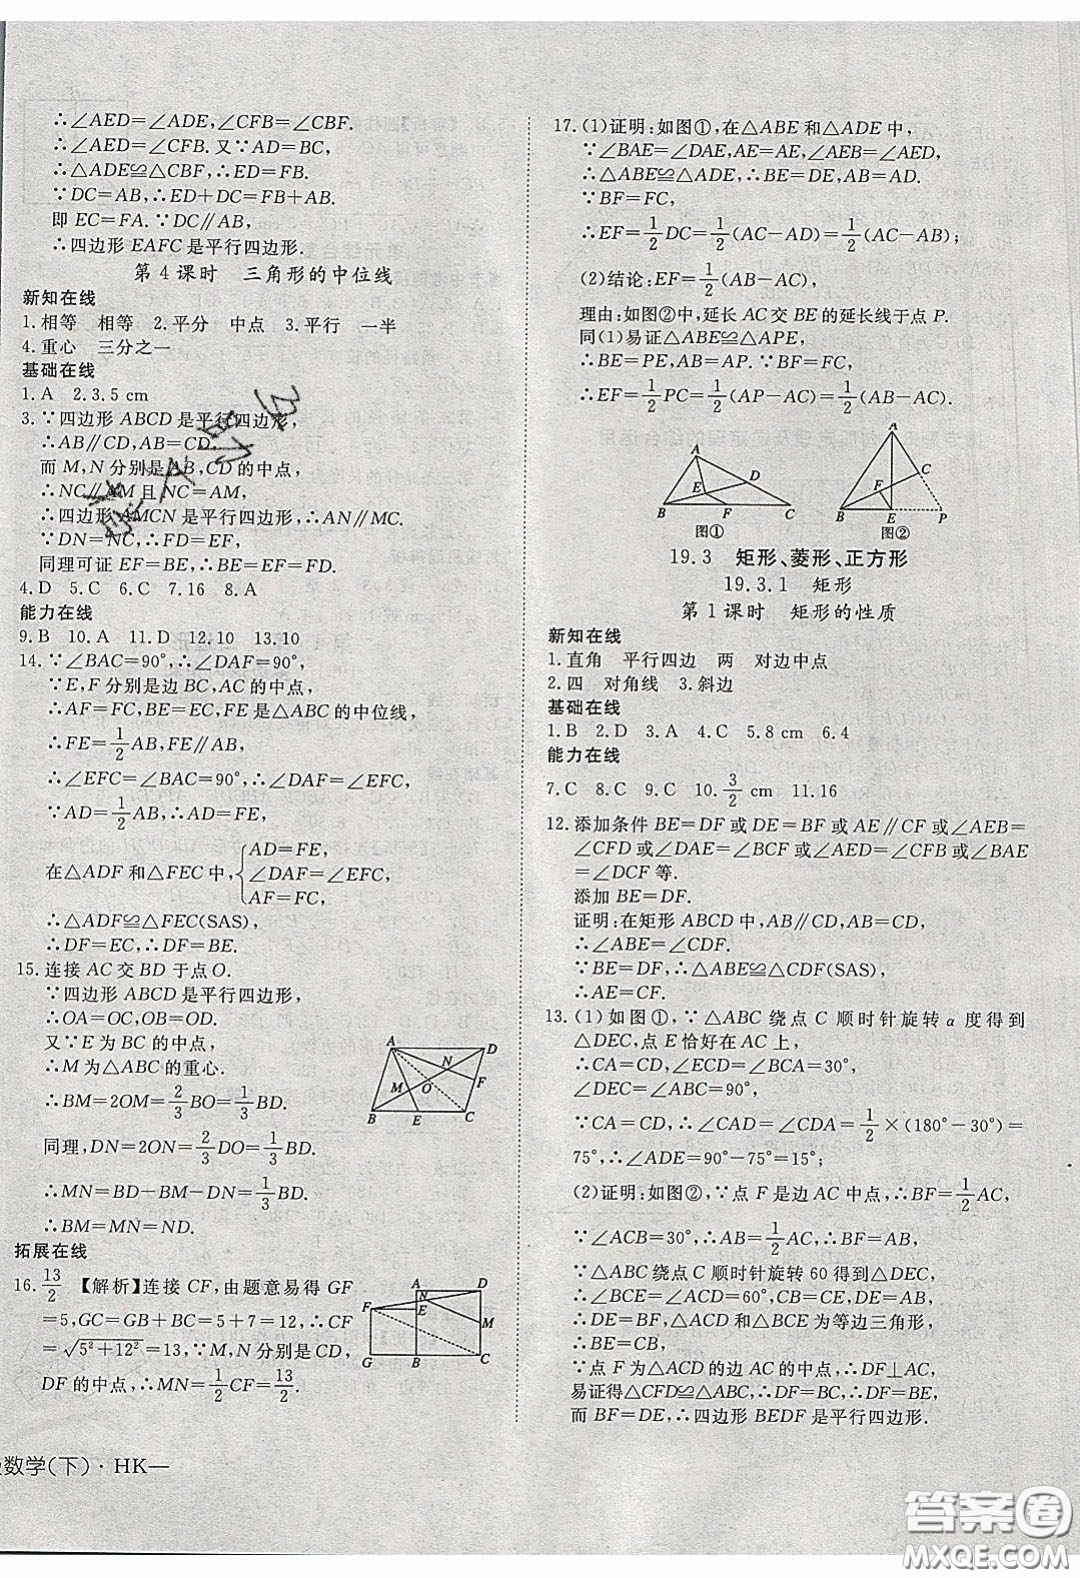 ∴∠AED=∠ADE,∠CFB=∠CBF.
∴∠AED=∠CFB.又∵AD=BC,
∴△ADE≌△CBF,∴ED=FB.
∵DC=AB,∴ED+DC=FB+AB.
即EC=FA.∵DC∥AB,
∴四边形EAFC是平行四边形.
第4课时　三角形的中位线
新知在线
1.相等　相等　2.平分　中点　3.平行　一半
4.重心　三分之一
基础在线
1.A　2.3.5 cm
3.∵四边形ABCD是平行四边形,
∴AB∥CD,AB=CD.
而M,N分别是AB,CD的中点,
∴NC∥AM且NC=AM,
∴四边形AMCN是平行四边形,∴AN∥MC.
∵DN=NC,∴DF=EF.
同理可证EF=BE,∴BE=EF=FD.
4.D　5.C　6.C　7.16　8.A
能力在线
9.B　10.A　11.D　12.10　13.10
14.∵∠BAC=90°,∴∠DAF=90°,
∵E,F分别是边BC,AC的中点,
∴AF=FC,BE=EC,FE是△ABC的中位线,
∴FE=1/2AB,FE∥AB,
∴∠EFC=∠BAC=90°,∴∠DAF=∠EFC,
∵AD=1/2AB,∴AD=FE,
在△ADF和△FEC中,{AD=FE,
∠DAF=∠EFC,
AF=FC,
∴△ADF≌△FEC(SAS),
∴DF=EC,∴DF=BE.
15.连接AC交BD于点O.
∵四边形ABCD是平行四边形,
∴OA=OC,OB=OD.
又∵E为BC的中点,
∴M为△ABC的重心.
∴BM=2OM=2/3BO=1/3BD.
同理,DN=2ON=2/3DO=1/3BD.
∴MN=BD−BM−DN=1/3BD.
∴BM=MN=ND.
A D N F M O B E C
拓展在线
16.13/2　【解析】连接CF,由题意易得GF
=5,GC=GB+BC=5+7=12,∴CF
=√5²+12²=13,∵M,N分别是CD,
DF的中点,∴MN=1/2CF=13/2.
A D N F E M G B C
数学(下)·HK—
17.(1)证明:如图①,在△ABE和△ADE中,
∵∠BAE=∠DAE,AE=AE,∠AEB=∠AED,
∴△ABE≌△ADE,∴BE=DE,AB=AD.
∵BF=FC,
∴EF=1/2DC=1/2(AC−AD)=1/2(AC−AB);
(2)结论:EF=1/2(AB−AC),
理由:如图②中,延长AC交BE的延长线于点P.
同(1)易证△ABE≌△APE,
∴BE=PE,AB=AP.∵BF=FC,
∴EF=1/2PC=1/2(AP−AC)=1/2(AB−AC).
A D E B F C 图①
A C F B E P 图②
19.3　矩形、菱形、正方形
19.3.1　矩形
第1课时　矩形的性质
新知在线
1.直角　平行四边　两　对边中点
2.四　对角线　3.斜边
基础在线
1.B　2.D　3.A　4.C　5.8 cm　6.4
能力在线
7.C　8.C　9.C　10.3/2 cm　11.16
12.添加条件BE=DF或DE=BF或AE∥CF或∠AEB=
∠CFD或∠DAE=∠BCF或∠AED=∠CFB或∠BAE
=∠DCF等.
添加BE=DF.
证明:在矩形ABCD中,AB∥CD,AB=CD,
∴∠ABE=∠CDF.
∵BE=DF,∴△ABE≌△CDF(SAS),
∴AE=CF.
13.(1)如图①,∵△ABC绕点C顺时针旋转α度得到
△DEC,点E恰好在AC上,
∴CA=CD,∠ECD=∠BCA=30°,
∠DEC=∠ABC=90°,
∵CA=CD,∴∠CAD=∠CDA=1/2×(180°−30°)=
75°,∴∠ADE=90°−75°=15°;
(2)证明:如图②,∵点F是边AC中点,∴BF=1/2AC,
∵∠ACB=30°,∴AB=1/2AC,∴BF=AB,
∵△ABC绕点C顺时针旋转60得到△DEC,
∴∠BCE=∠ACD=60°,CB=CE,DE=AB,
∴DE=BF,△ACD和△BCE为等边三角形,
∴BE=CB,
∵点F为△ACD的边AC的中点,∴DF⊥AC,
易得证△CFD≌△ABC,∴DF=BC,∴DF=BE,
而BF=DE,∴四边形BEDF是平行四边形.
答案圈
MXQE.COM